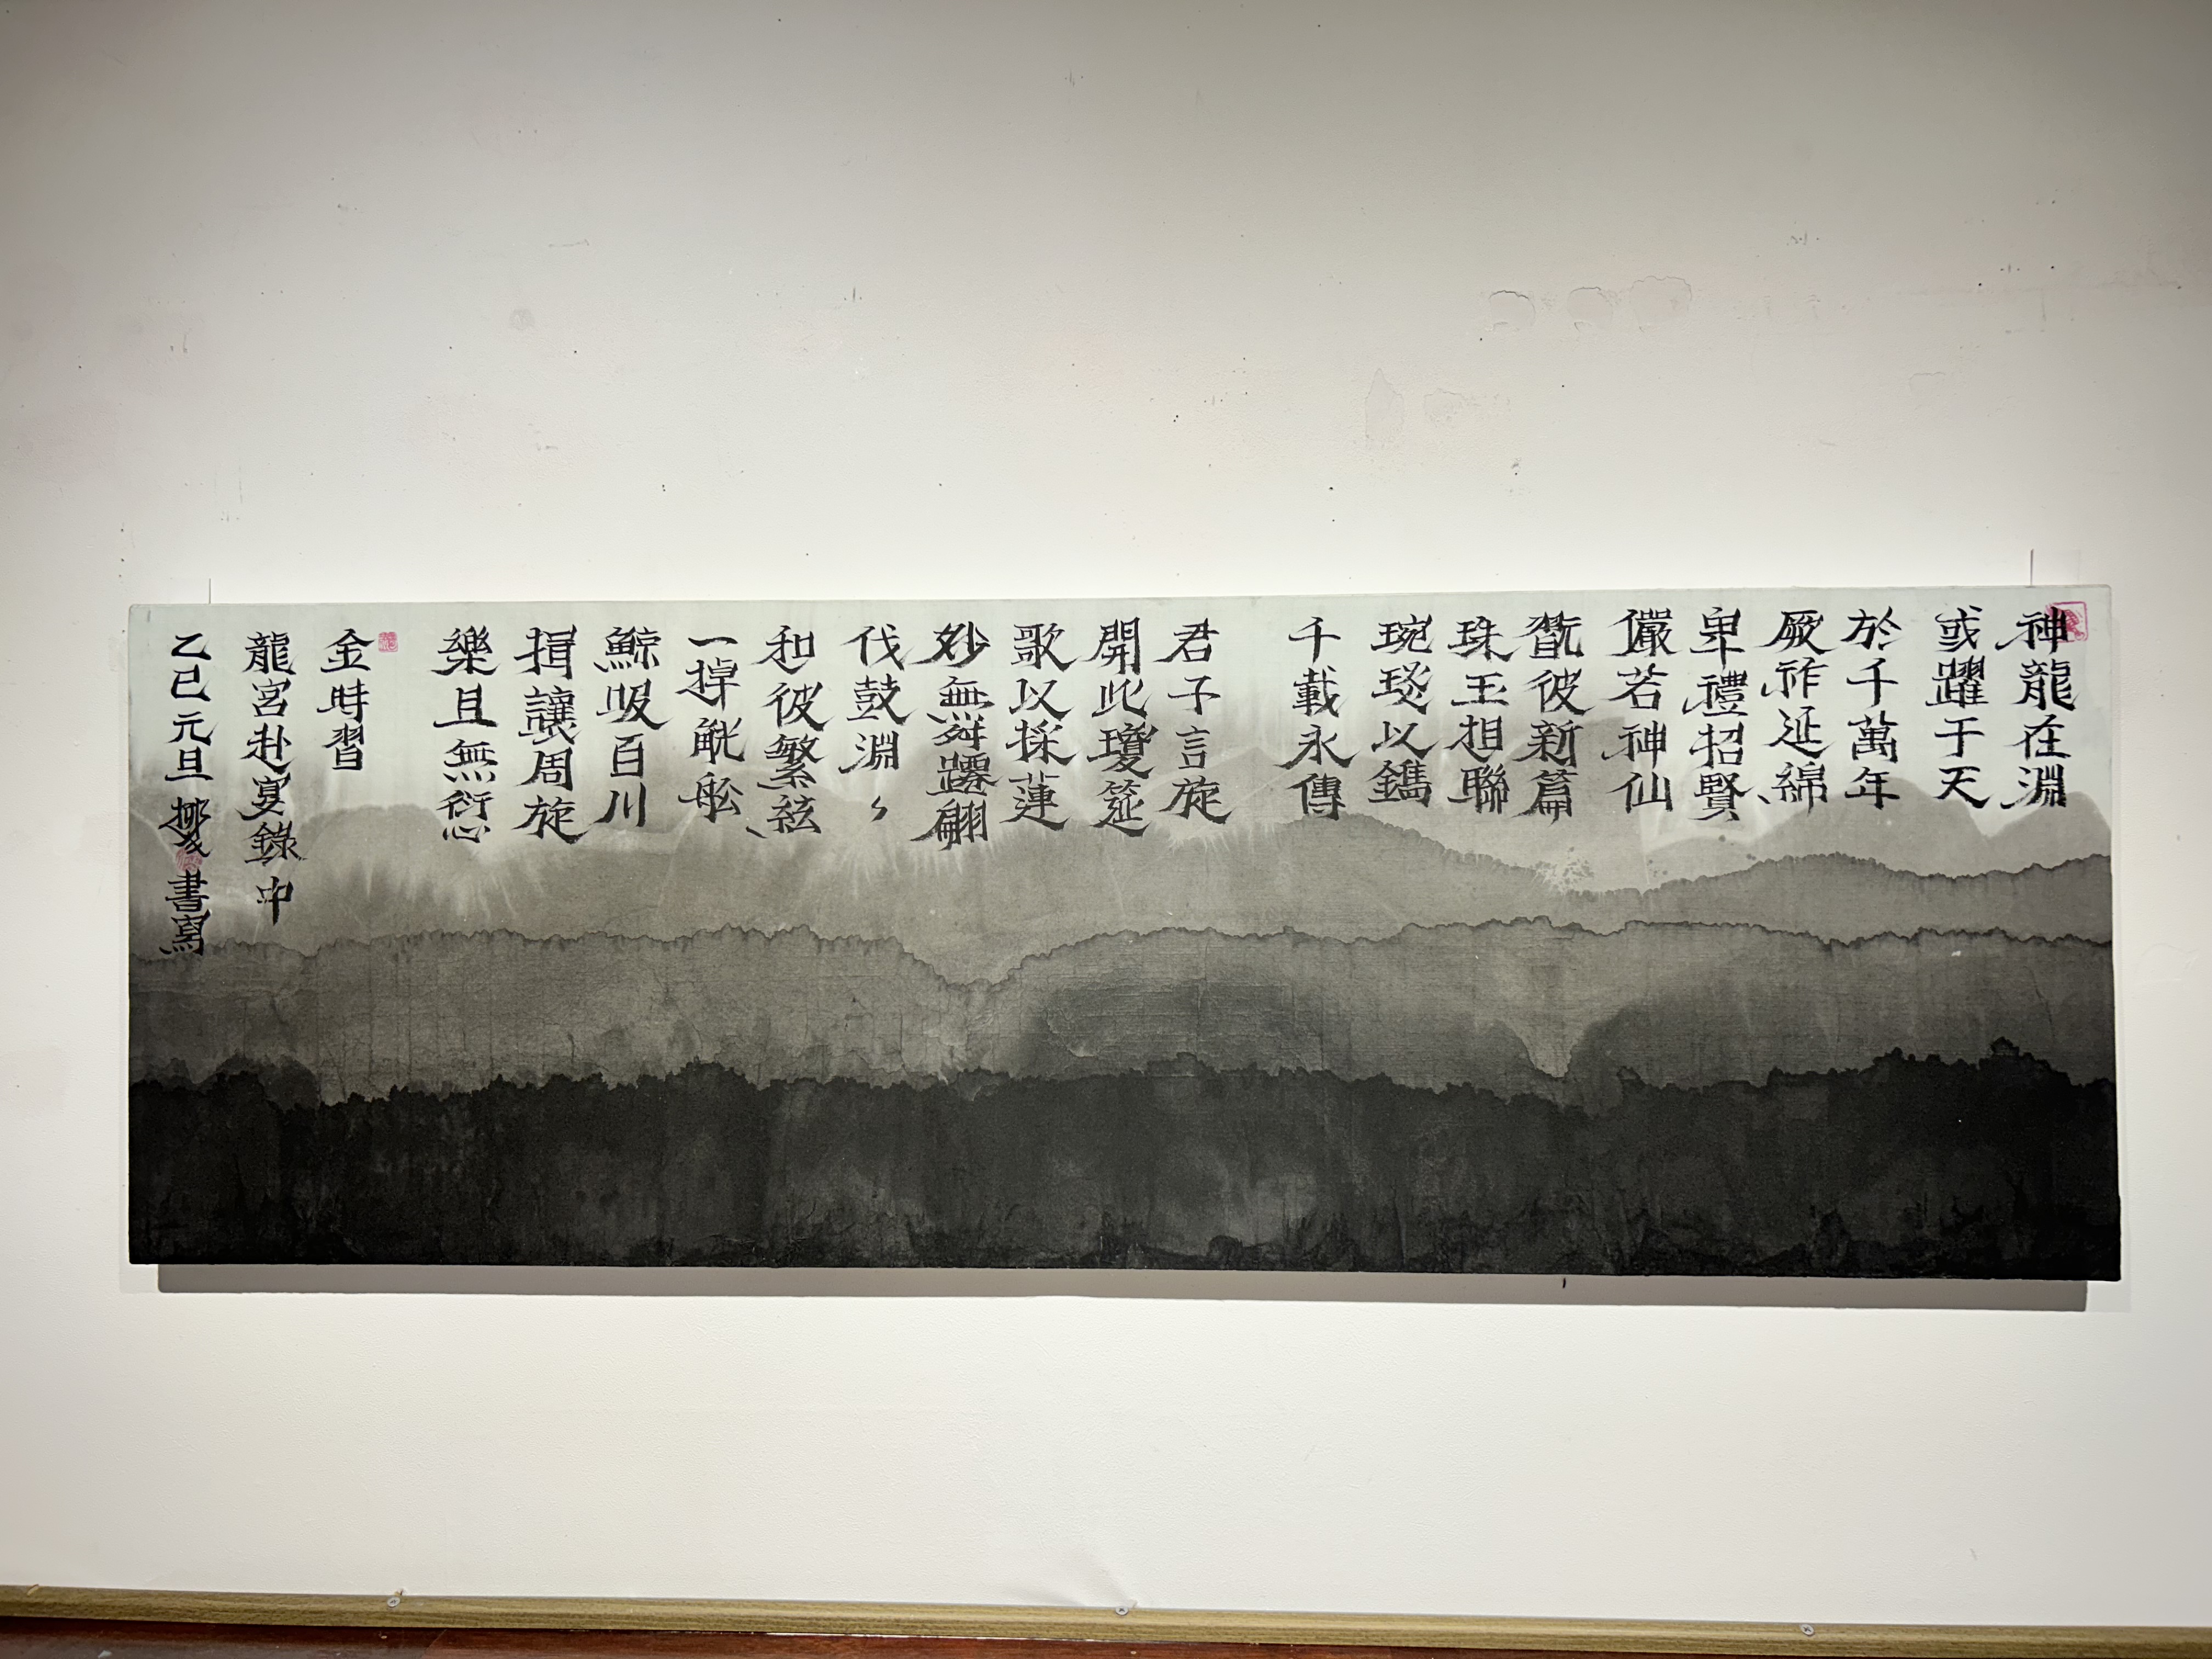 神龍在淵
或躍于天
於千萬年
厥祚延綿
卑禮招賢
儼若神仙
翫彼新篇
珠玉相聯
琬琰以鐫
千載永傳
君子言旋
開此瓊筵
歌以採蓮
妙舞蹮翩
伐鼓淵〻
和彼繁絃
一掉觥船
鯨吸百川
揖讓周旋
樂且無衍
金時習
龍宮赴宴錄 中
乙巳元旦 書寫